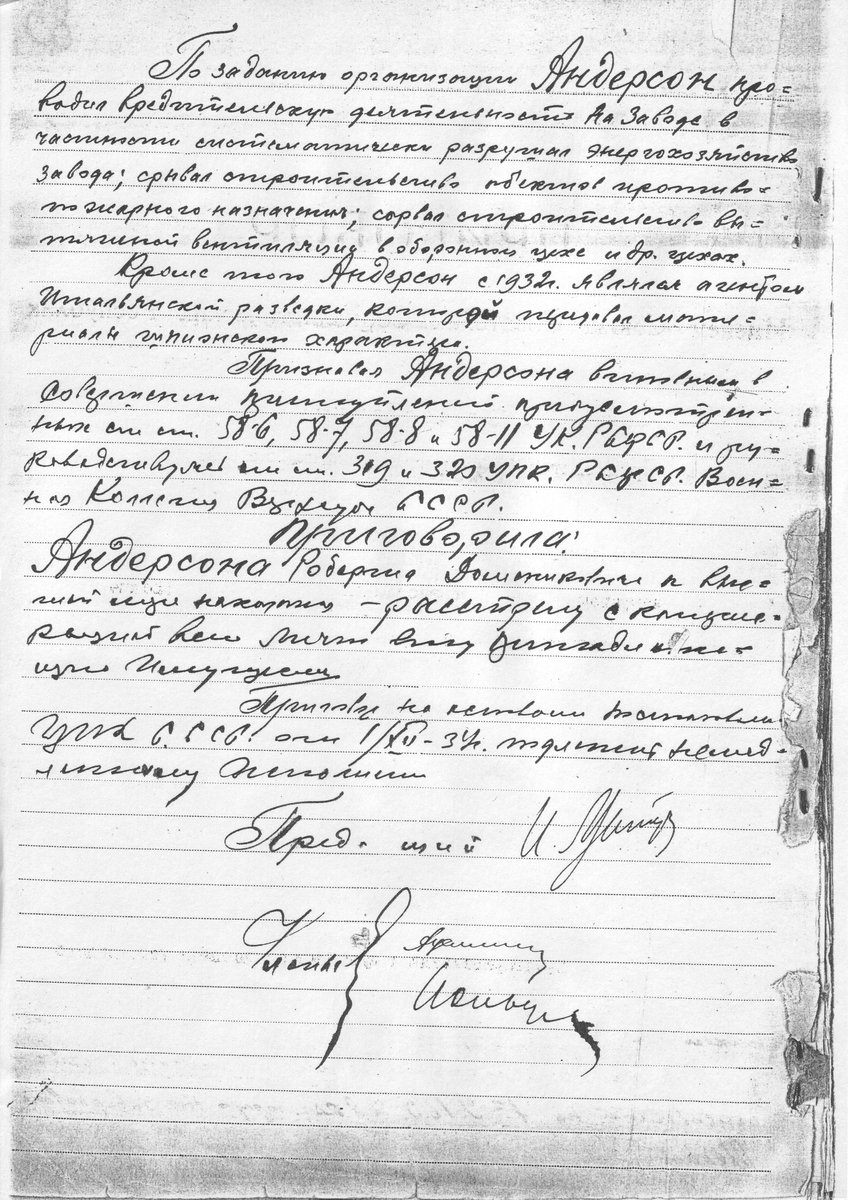 По заданию организации Андерсон про-
водил вредительскую деятельность на заводе в
частности систематически разрушал энергохозяйство
завода; срывал строительство обектов противо-
пожарного назначения; сорвал строительство вы-
тяжной вентиляции в оборонном цехе и др. цехах.
Кроме того Андерсон с 1932г. являлся агентом
Итальянской разведки, которой передавал мате-
риалы шпионского характера.
Признавая Андерсона виновным в
совершении преступлений предусмотрен-
ных ст ст. 58-6, 58-7, 58-8 и 58-11 УК. РСФСР. и ру-
ководствуясь ст ст. 319 и 320 УПК. РСФСР. Воен-
ная Коллегия Верхсуда СССР.
Приговорила:
Андерсона Роберта к выс-
шей мере наказания – расстрелу с конфис-
кацией всего лично ему принадлежа-
щего имущества
Приговор на основании постановления
ЦИК С.ССР. от 1/XII-34г. подлежит немед-
ленному исполнению
Пред-щий
Члены